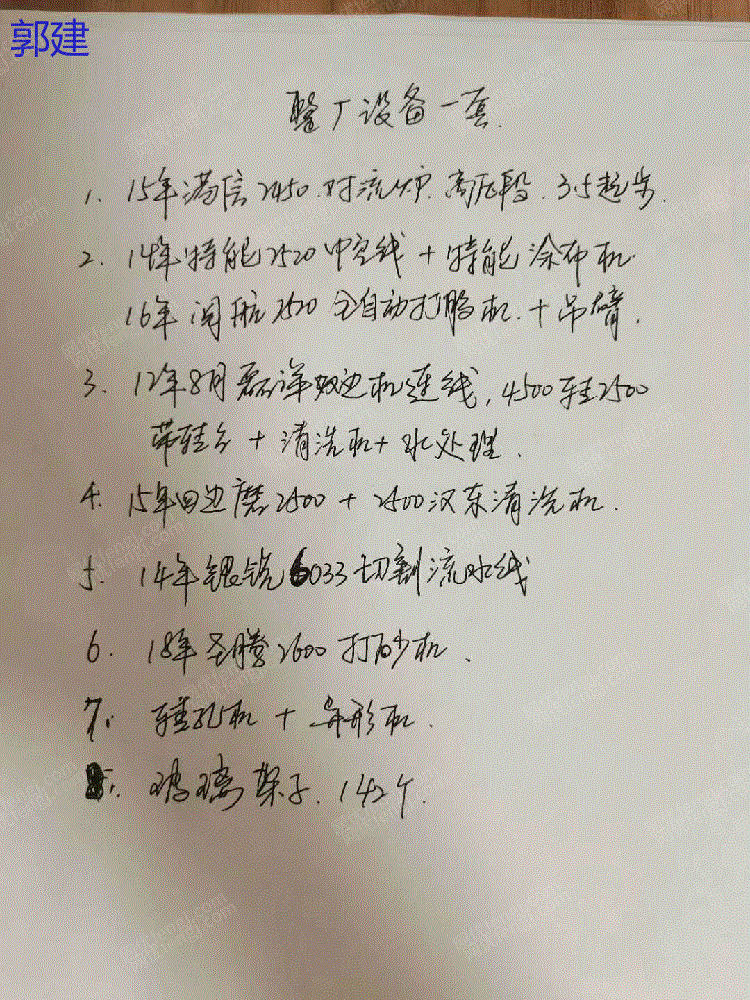 郭建
整厂设备一套.
1. 15年满信2450.对流炉.高压段.3.5起步.
2. 14年特能2520中空线+特能涂布机
16年闰航2520全自动打胶机.+吊臂.
3. 12年8月磊详双边机连线,4500转2500
带转台+清洗机+水处理.
4. 15年四边磨2500+2500汉东清洗机.
5. 14年锟锐6033切割流水线
6. 18年圣腾2600打砂机.
7. 钻孔机+异形机.
8. 玻璃架子.142个.